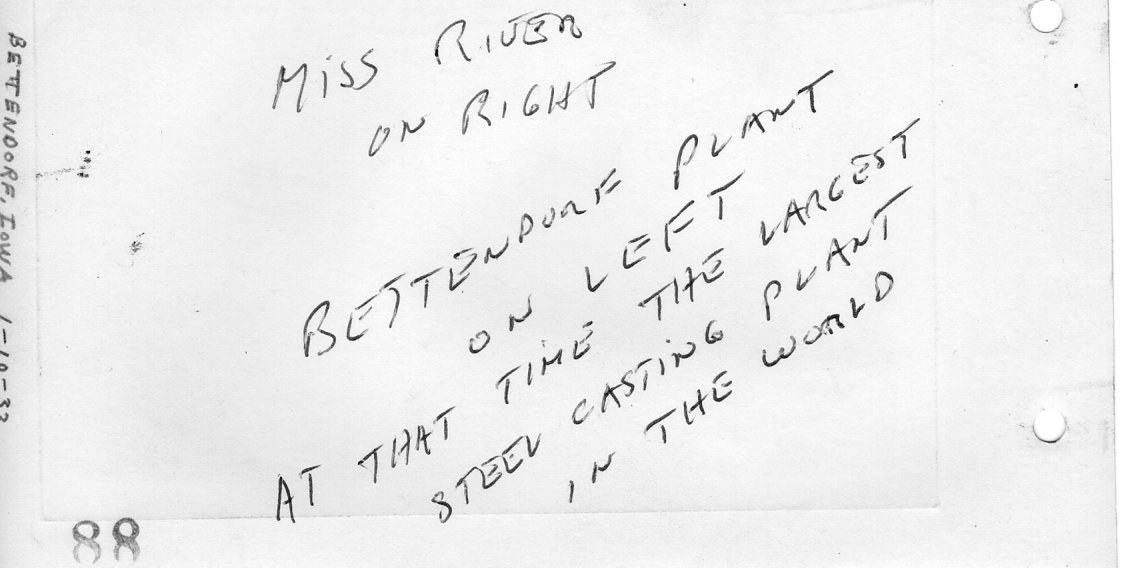 MISS RIVER
ON RIGHT
BETTENDORF PLANT
ON LEFT
AT THAT TIME THE LARGEST
STEEL CASTING PLANT
IN THE WORLD
BETTENDORF, IOWA 1-10-32
88